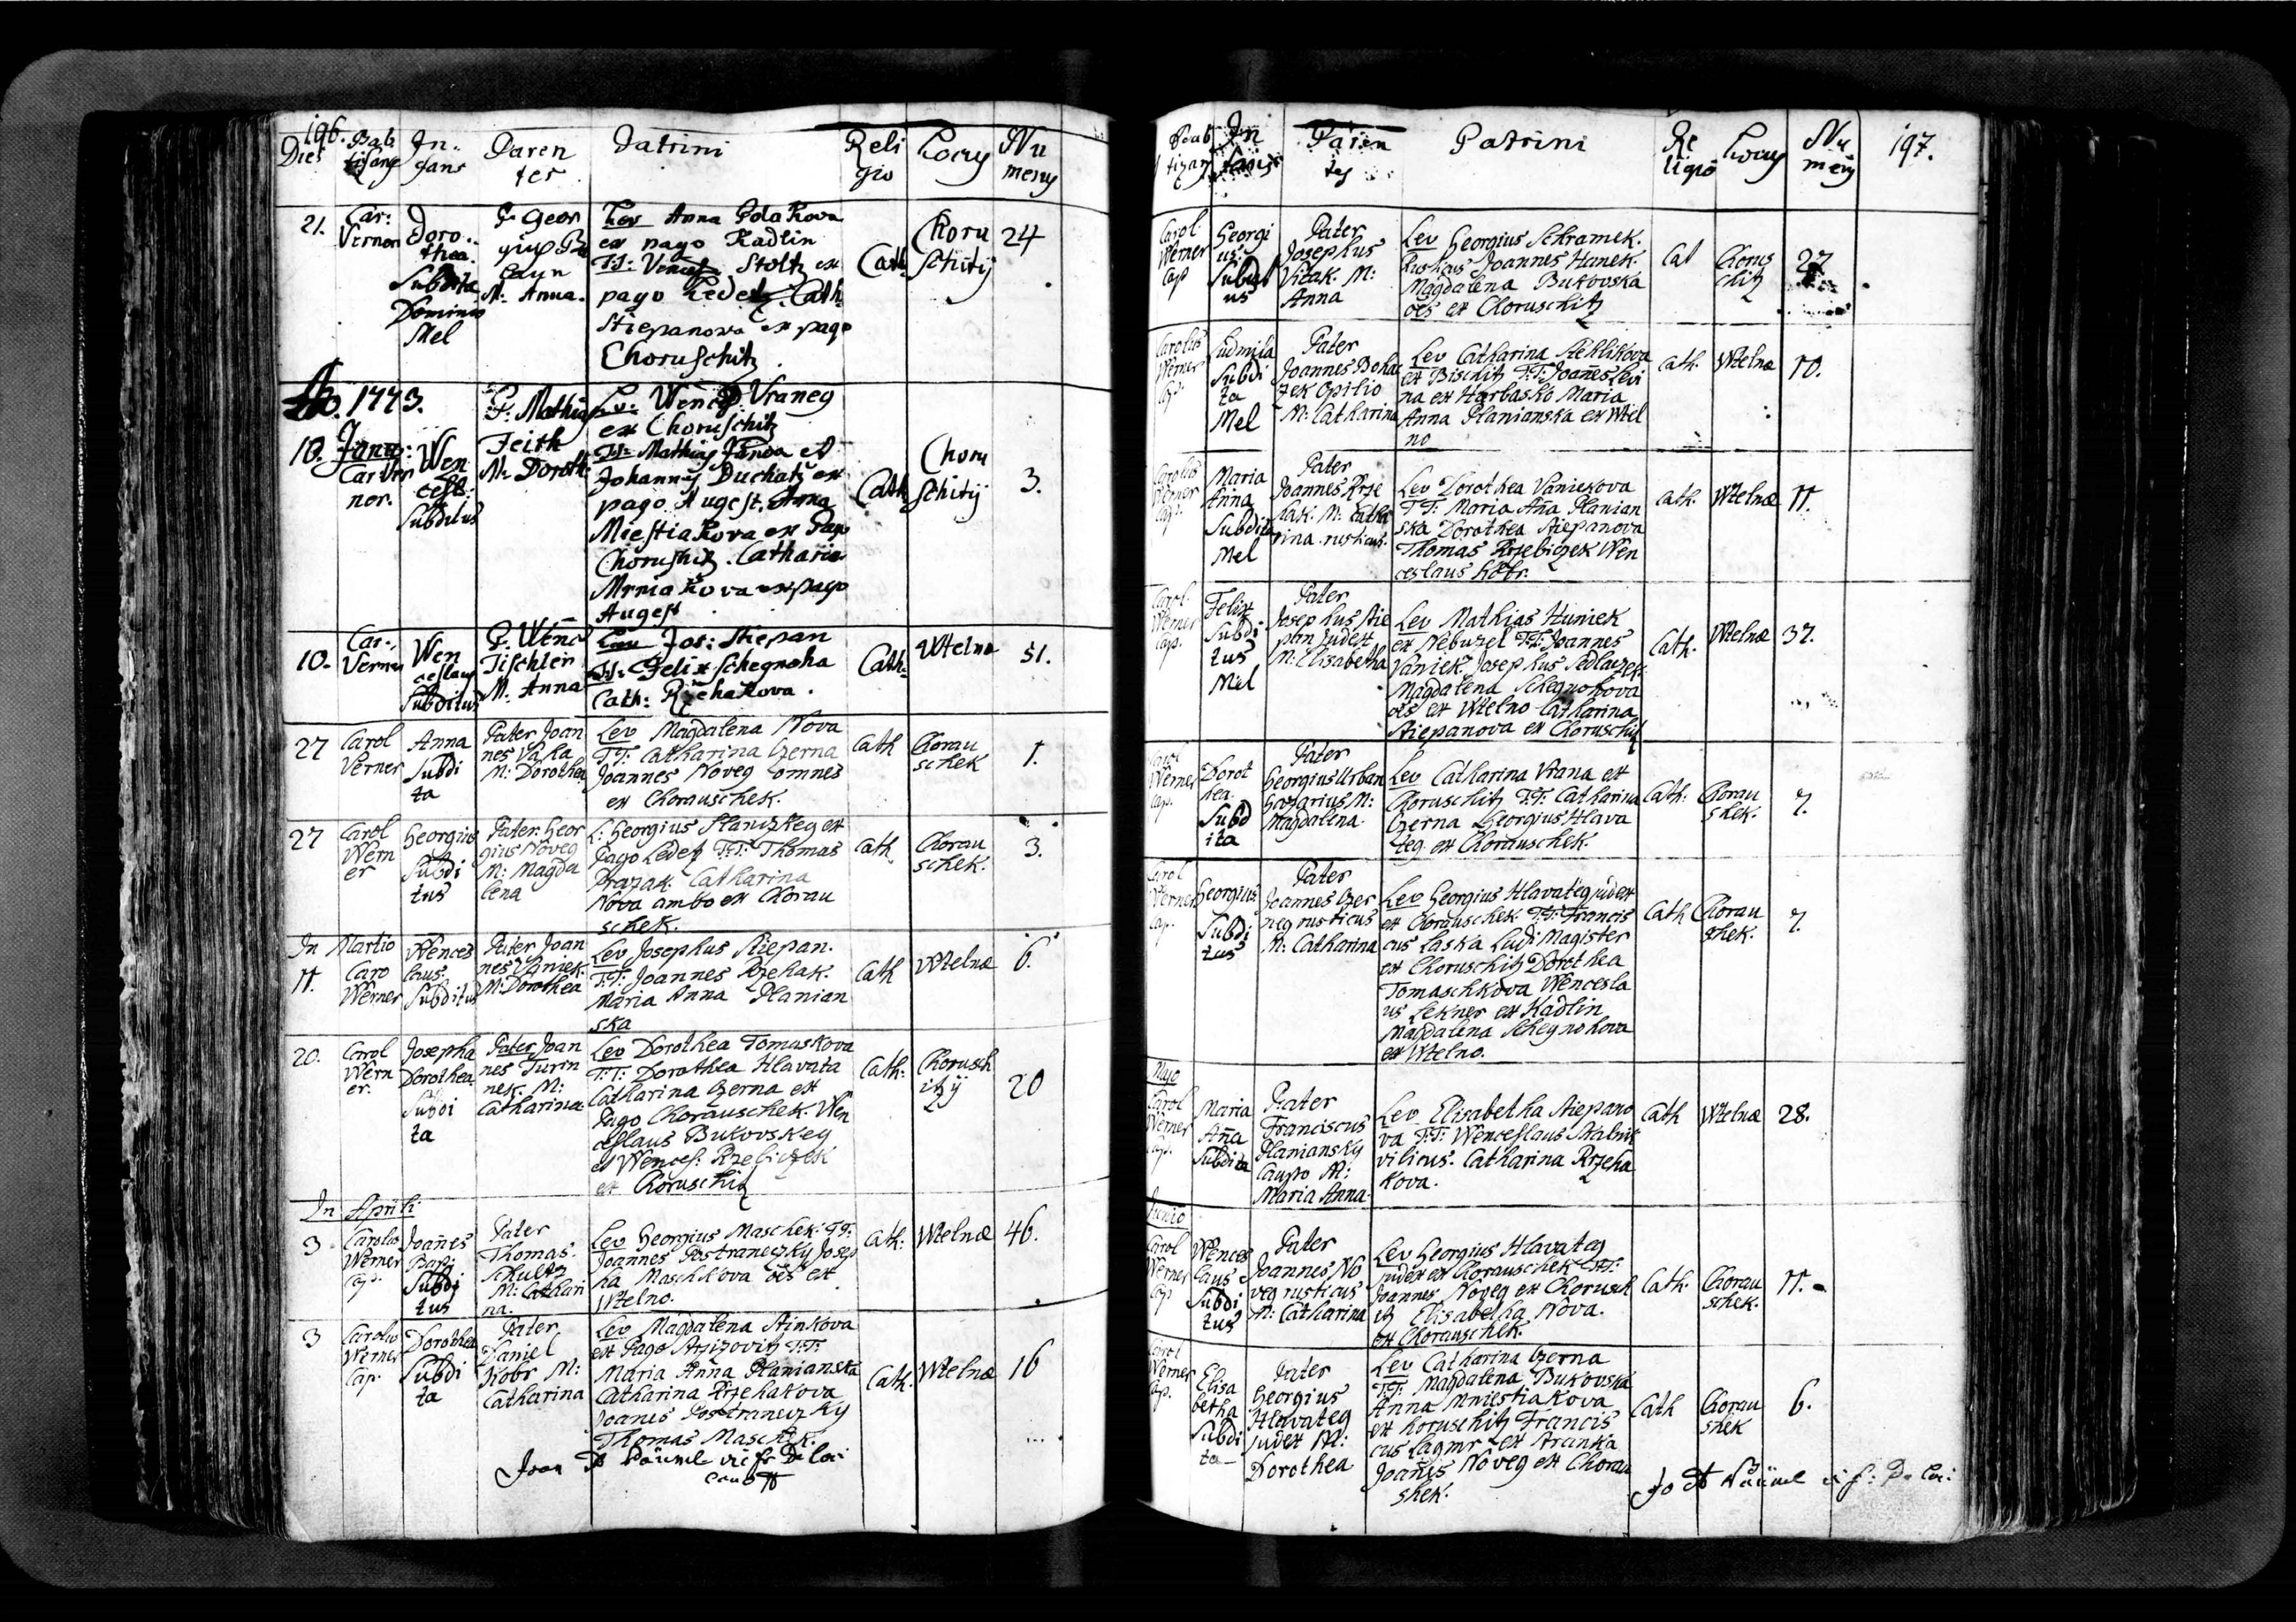 196.
Dies Bab In= Paren Patrini Reli Locus Nu
tisans fans tes gio merus
21. Car: Verner
Doro..
thea.
Subdita
Dominio
Mel
P. Geor
M: Anna.
Lev Anna
ex pago Kadlin
TT: Stoltz ex
pago Cath
Stiepanova ex pago
Choruschitz
Cath
Choru
schitij
24
Ao. 1773.
10. Janu:
Car Ver
ner.
Wen
cesl:
Subditus
P. Mathias
Feith
M: Doroth:
Wenc Vraneg
ex Choruschitz
TT: Mathias Janda et
Johannes Duchatz ex
pago Augest. Anna
Miestiakova ex Pago
Choruschitz. Catharina
ex pago
Augest
Cath
Choru
schitij
3.
10.
Car:
Verner
Wen
ceslaus
Subditus
P. Wenc
Tischler
M. Anna
Lev Jos: Stiepan
TT: Felix Schegnoha
Cath: Rzehakova.
Cath:
Wtelno
51.
27
Carol
Verner
Anna
Subdi
ta
Pater Joan
nes Vaha
M: Dorothea
Lev Magdalena Nova
TT: Catharina Czerna
Joannes Noveg omnes
ex Chorauschek.
Cath
Chorau
schek
1.
27
Carol
Wern
er
Georgius
Subdi
tus
Pater: Geor
gius Noveg
M: Magda
lena
L: Georgius Slanczkeg ex
Pago Ledez TT: Thomas
Prazak Catharina
Nova ambo ex Chorau
schek.
Cath
Chorau
schek.
3.
In Martio
11.
Caro
Werner
Wences
laus.
Subditus
Pater Joan
nes Vaniek.
M: Dorothea
Lev Josephus Stiepan.
TT: Joannes Rzehak.
Maria Anna Planian
ska
Cath
Wtelnæ
6.
20.
Carol
Wern
er.
Josepha
Dorothea
Subdi
ta
Pater Joan
nes Turin
nek. M:
Catharina
Lev Dorothea Tomaskova
T:T: Dorothea Hlavata
Catharina Czerna ex
Pago Chorauschek. Wen
ceslaus Bukovskeg
et Wences: Rzebiczek
ex Choruschitz
Cath:
Chorusch
itzij
20
In Aprili
3
Carolus
Werner
cap.
Joañes
Bapt
Subdi
tus
Pater
Thomas.
Schultz
M: Cathari
na.
Lev Georgius Maschek: TT:
Joannes Postraneczky Josep
ha Maschkova oẽs ex
Wtelno.
Cath:
Wtelnæ
46.
3
Carolus
Werner
Cap.
Dorothea
Subdi
ta
Pater
Daniel
Kobr M:
Catharina
Lev Magdalena Ainkova
ex Pago T:T:
Maria Anna Planianska
Catharina Rzehakova
Joanes Postraneczky
Thomas Maschek.
Cath.
Wtelnæ
16
197.
Bab In Paren Patrini Re Locus Nu
tizans fans tes ligio merus
Carol
Werner
Cap
Georgi
us.
Subdit
us
Pater
Josephus
Vitak. M:
Anna
Lev Georgius Schramek.
Rusticus Joannes Hanek.
Magdalena Bukovska
oẽs ex Choruschitz
Cat
Chorus
chitz
27
Carolus
Werner
Cap.
Ludmila
Subdi
ta
Mel
Pater
Joannes Boha
zek Opilio
M: Catharina
Lev Catharina Stehlikova
ex Bischitz T:T: Joañes Levi
na ex Harbasko Maria
Anna Planianska ex Wtel
no
Cath.
Wtelnæ
10.
Carolus
Werner
Cap.
Maria
Anna
Subdita
Mel
Pater
Joannes Rze
hak. M: Catha
rina. rusticus.
Lev Dorothea Vaniekova
T T: Maria Aña Planian
ska Dorothea Stiepanova
Thomas Rzebiczek Wen
ceslaus Kobr.
Cath.
Wtelnæ
11.
Carol
Werner
Cap.
Felix
Subdi
tus
Mel
Pater
Josephus Stie
pan Judex
M: Elisabetha
Lev Mathias Huniek
ex Nebuzel T:T: Joannes
Vaniek. Josephus Sedlaczek.
Magdalena Schegnohova
oẽs ex Wtelno Catharina
Stiepanova ex Choruschitz
Cath.
Wtelnæ
37.
Carol
Werner
Cap.
Dorot
hea.
Subd
ita
Pater
Georgius Urban
M:
Magdalena.
Lev Catharina Vrana ex
Choruschitz T:T: Catharina
Czerna Georgius Hlava
teg ex Chorauschek.
Cath:
Chorau
shek.
7.
Carol
Werner
Cap.
Georgius
Subdi
tus
Pater
Joannes Czer
neg rusticus
M: Catharina
Lev Georgius Hlavateg judex
ex Chorauschek T:T: Francis
cus Laska Ludi Magister
ex Choruschitz Dorothea
Tomaschkova Wencesla
us Lekner ex Kadlin
Magdalena Schegnohova
ex Wtelno.
Cath
Chorau
shek.
7.
Majo
Carol
Werner
Cap.
Maria
Aña
Subdita
Pater
Franciscus
Planiansky
Caupo M:
Maria Anna.
Lev Elisabetha Stiepano
va T:T: Wenceslaus Skalnik
vilicus. Catharina Rzeha
kova.
Cath
Wtelnæ
28.
Junio
Carol
Werner
Cap
Wences
laus
Subdi
tus
Pater
Joannes No
veg rusticus
M: Catharina
Lev Georgius Hlavateg
judex ex Chorauschek TT:
Joannes Noveg ex Chorusch
itz Elisabetha Nova.
ex Chorauschek.
Cath.
Chorau
schek.
11.
Carol
Werner
Cap.
Elisa
betha
Subdi
ta
Pater
Georgius
Hlavateg
Judex M:
Dorothea
Lev Catharina Czerna
T:T: Magdalena Bukovska
Anna Mniestiakova
ex horuschitz Francis
cus ex Aranka
Joañes Noveg ex Chorau
shek.
Cath
Chorau
shek
6.